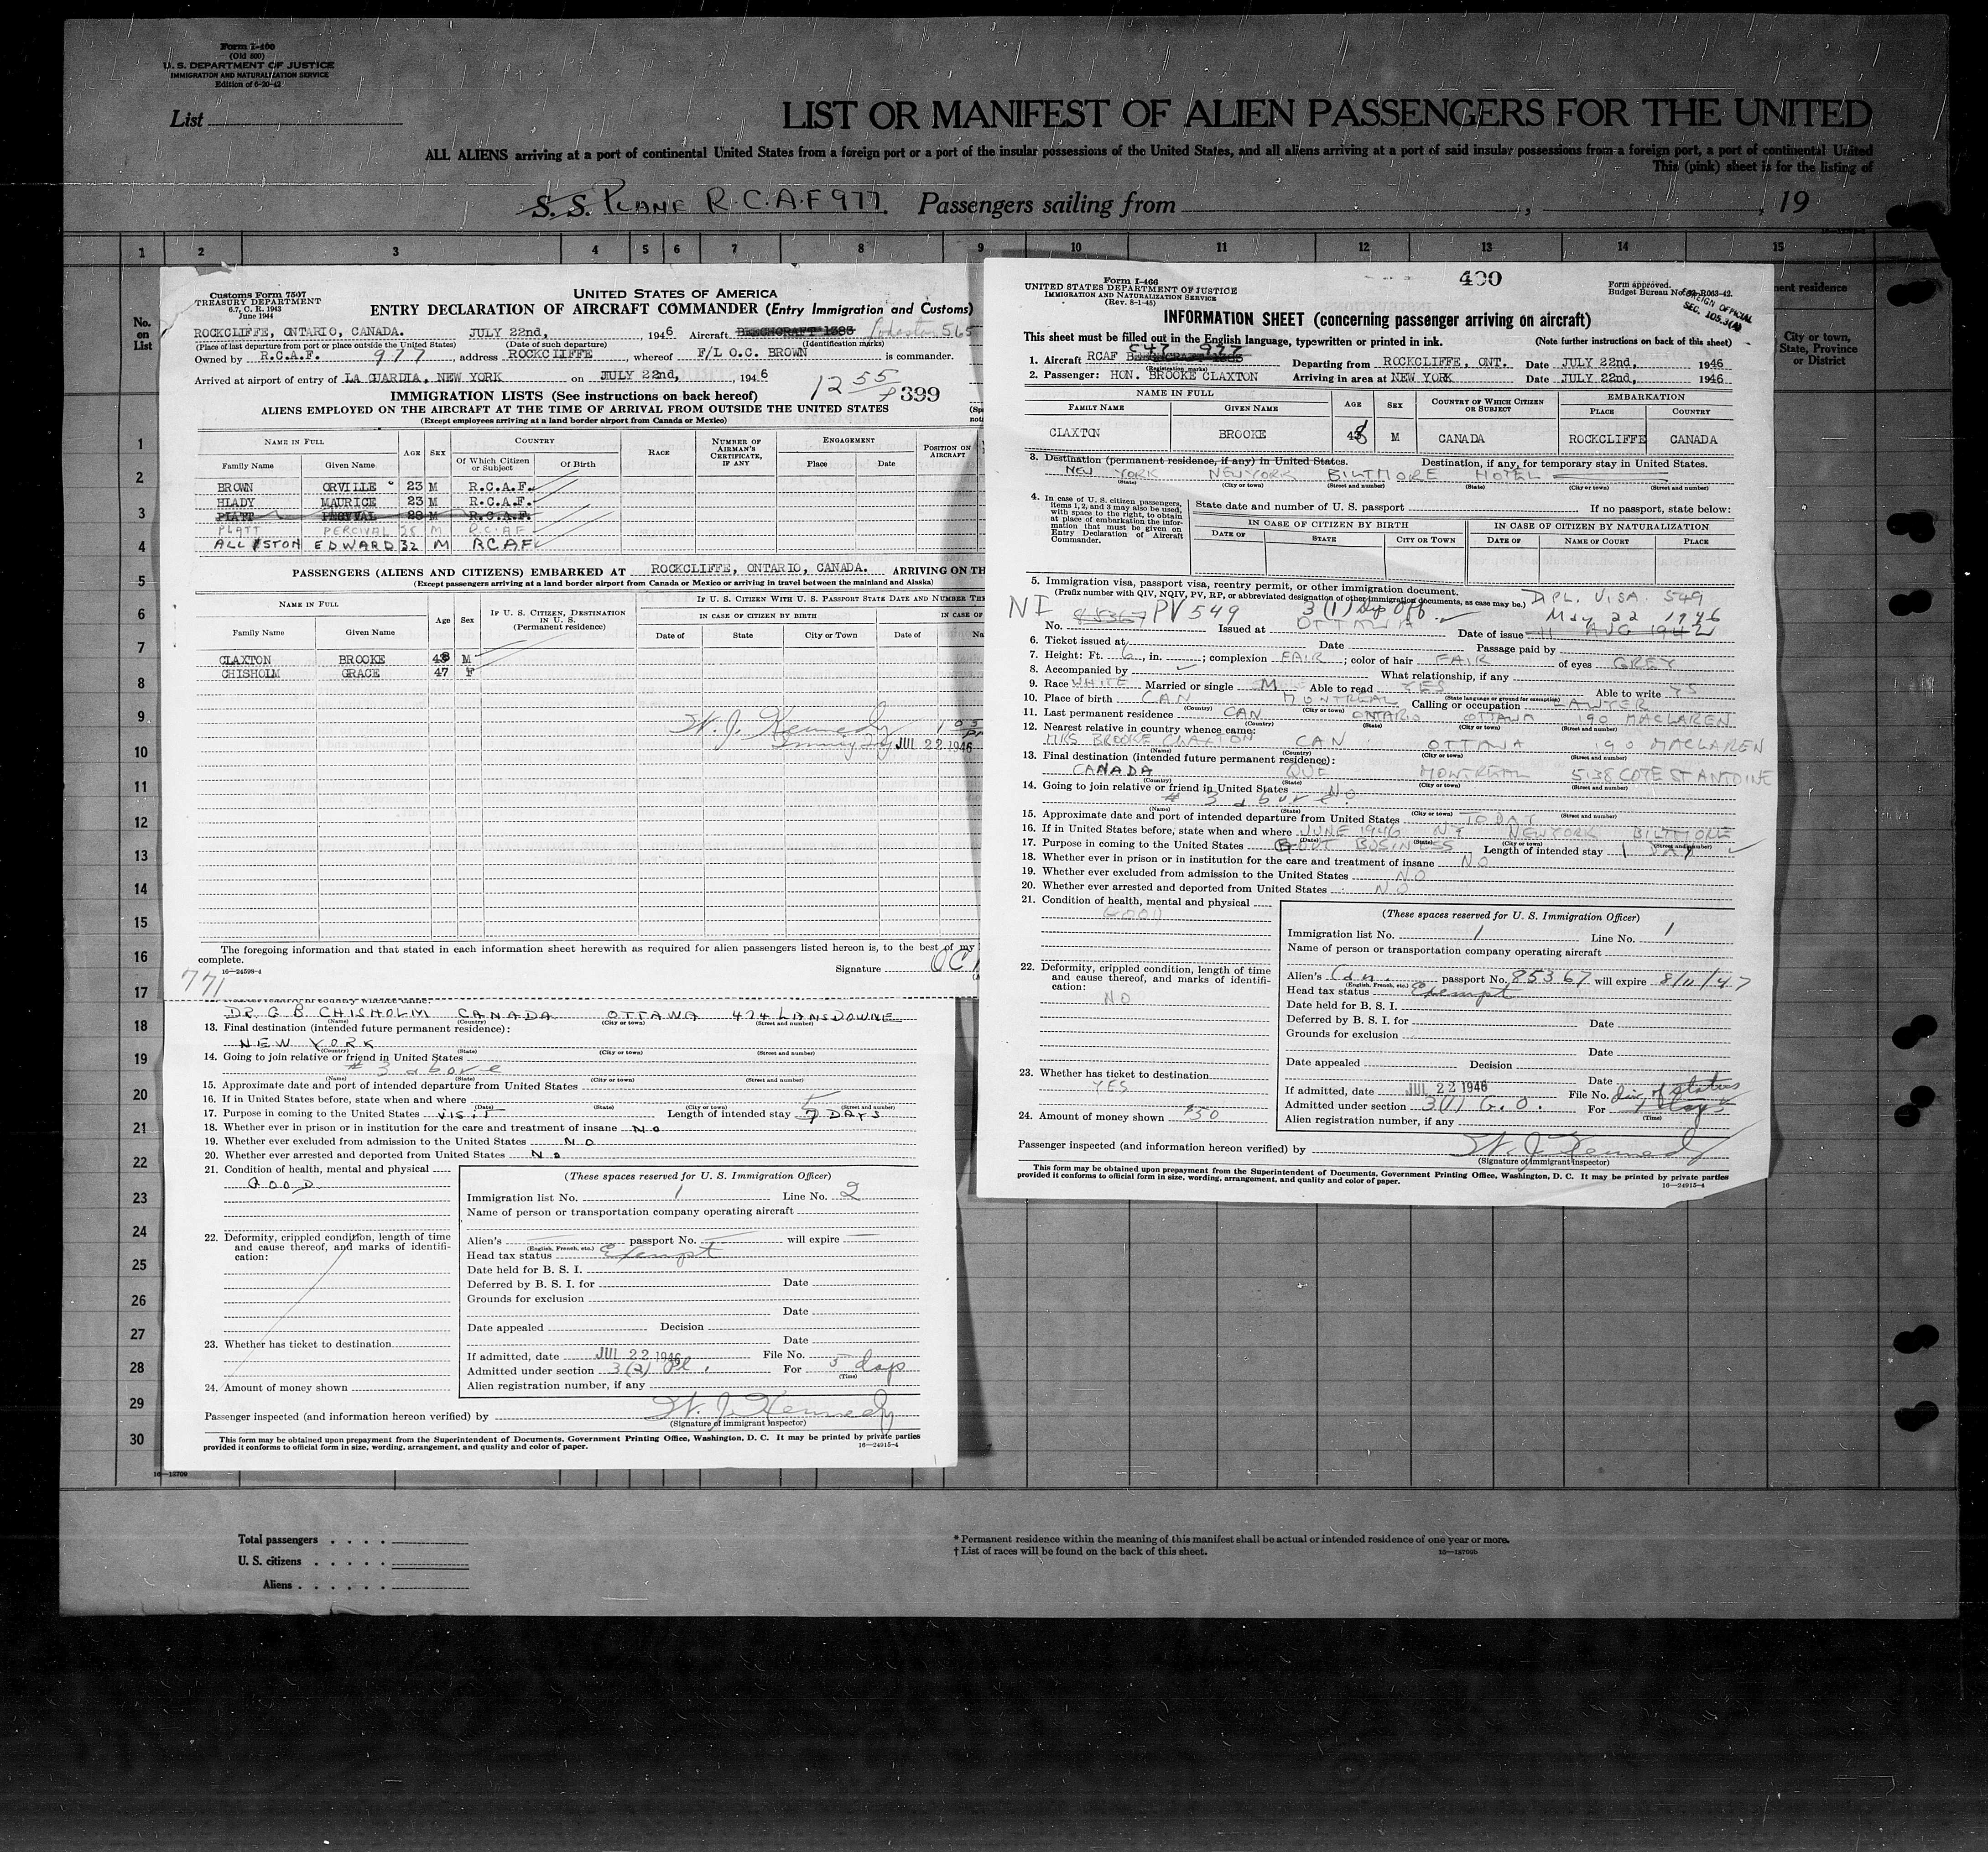 Form I-400
(Old 500)
U. S. DEPARTMENT OF JUSTICE
IMMIGRATION AND NATURALIZATION SERVICE
Edition of 6-20-42
List
LIST OR MANIFEST OF ALIEN PASSENGERS FOR THE UNITED
ALL ALIENS arriving at a port of continental United States from a foreign port or a port of the insular possessions of the United States, and all aliens arriving at a port of said insular possessions from a foreign port, a port of continental United
This (pink) sheet is for the listing of
S. S. PLANE R.C.A.F 977. Passengers sailing from , , 19
1 2 3 4 5 6 7 8 9 10 11 12 13 14 15
No. on List
City or town, State, Province or District
Customs Form 7507
TREASURY DEPARTMENT
6.7, C. R. 1943
June 1944
UNITED STATES OF AMERICA
ENTRY DECLARATION OF AIRCRAFT COMMANDER (Entry Immigration and Customs)
ROCKCLIFFE, ONTARIO, CANADA. JULY 22nd, 1946 Aircraft BEECHCRAFT 1388 Lodestar 565
(Place of last departure from port or place outside the United States) (Date of such departure) (Identification marks)
Owned by R.C.A.F. 977, address ROCKCLIFFE, whereof F/L O.C. BROWN is commander.
Arrived at airport of entry of LA GUARDIA, NEW YORK on JULY 22nd, 1946
12 55 P 399
IMMIGRATION LISTS (See instructions on back hereof)
ALIENS EMPLOYED ON THE AIRCRAFT AT THE TIME OF ARRIVAL FROM OUTSIDE THE UNITED STATES
(Except employees arriving at a land border airport from Canada or Mexico)
NAME IN FULL AGE SEX COUNTRY RACE NUMBER OF AIRMAN'S CERTIFICATE, IF ANY ENGAGEMENT POSITION ON AIRCRAFT
Family Name Given Name Of Which Citizen or Subject Of Birth Place Date
BROWN ORVILLE 23 M R.C.A.F.
HLADY MAURICE 23 M R.C.A.F.
PLATT PERCYVAL 28 M R.C.A.F.
PLATT PERCIVAL 25 M RCAF
ALLISTON EDWARD 32 M RCAF
PASSENGERS (ALIENS AND CITIZENS) EMBARKED AT ROCKCLIFFE, ONTARIO, CANADA. ARRIVING ON TH
(Except passengers arriving at a land border airport from Canada or Mexico or arriving in travel between the mainland and Alaska)
NAME IN FULL Age Sex IF U. S. CITIZEN, DESTINATION IN U. S. (Permanent residence) IF U. S. CITIZEN WITH U. S. PASSPORT STATE DATE AND NUMBER THE
IN CASE OF CITIZEN BY BIRTH IN CASE OF
Family Name Given Name Date of State City or Town Date of Na
CLAXTON BROOKE 48 M
CHISHOLM GRACE 47 F
W. J. Kennedy
JUL 22 1946
The foregoing information and that stated in each information sheet herewith as required for alien passengers listed hereon is, to the best of my
complete.
16—24598-4
Signature
771
DR G B CHISHOLM CANADA OTTAWA 474 LANSDOWNE
(Name) (Country) (City or town) (Street and number)
13. Final destination (intended future permanent residence):
NEW YORK
(Country) (State) (City or town) (Street and number)
14. Going to join relative or friend in United States
# 3 above
(Name) (State) (City or town) (Street and number)
15. Approximate date and port of intended departure from United States
16. If in United States before, state when and where
(Date) (State) (City or town) (Street and number)
17. Purpose in coming to the United States VISIT Length of intended stay 7 DAYS 5
18. Whether ever in prison or in institution for the care and treatment of insane NO
19. Whether ever excluded from admission to the United States NO
20. Whether ever arrested and deported from United States NO
21. Condition of health, mental and physical
GOOD
22. Deformity, crippled condition, length of time and cause thereof, and marks of identification:
23. Whether has ticket to destination
24. Amount of money shown
(These spaces reserved for U. S. Immigration Officer)
Immigration list No. 1 Line No. 2
Name of person or transportation company operating aircraft
Alien's passport No. will expire
(English, French, etc.)
Head tax status Exempt
Date held for B. S. I.
Deferred by B. S. I. for Date
Grounds for exclusion
Date
Date appealed Decision
Date
If admitted, date JUL 22 1946 File No.
Admitted under section 3(2) For 5 days
(Time)
Alien registration number, if any
Passenger inspected (and information hereon verified) by W. J. Kennedy
(Signature of immigrant inspector)
This form may be obtained upon prepayment from the Superintendent of Documents, Government Printing Office, Washington, D. C. It may be printed by private parties
provided it conforms to official form in size, wording, arrangement, and quality and color of paper.
16—24915-4
Form I-466
UNITED STATES DEPARTMENT OF JUSTICE
IMMIGRATION AND NATURALIZATION SERVICE
(Rev. 8-1-45)
400
Form approved.
Budget Bureau No. 43-R063-42.
FOREIGN OFFICIAL
SEC. 105.3(A)
INFORMATION SHEET (concerning passenger arriving on aircraft)
This sheet must be filled out in the English language, typewritten or printed in ink. (Note further instructions on back of this sheet)
1. Aircraft RCAF BEECHCRAFT 1388 C47 977 Departing from ROCKCLIFFE, ONT. Date JULY 22nd, 1946
(Registration marks)
2. Passenger: HON. BROOKE CLAXTON Arriving in area at NEW YORK Date JULY 22nd, 1946
NAME IN FULL AGE SEX COUNTRY OF WHICH CITIZEN OR SUBJECT EMBARKATION
FAMILY NAME GIVEN NAME PLACE COUNTRY
CLAXTON BROOKE 48 M CANADA ROCKCLIFFE CANADA
3. Destination (permanent residence, if any) in United States. Destination, if any, for temporary stay in United States.
NEW YORK NEW YORK BILTMORE HOTEL
(State) (City or town) (Street and number) (State) (City or town) (Street and number)
4. In case of U. S. citizen passengers, items 1, 2, and 3 may also be used, with space to the right, to obtain at place of embarkation the information that must be given on Entry Declaration of Aircraft Commander.
State date and number of U. S. passport If no passport, state below:
IN CASE OF CITIZEN BY BIRTH IN CASE OF CITIZEN BY NATURALIZATION
DATE OF STATE CITY OR TOWN DATE OF NAME OF COURT PLACE
5. Immigration visa, passport visa, reentry permit, or other immigration document.
(Prefix number with QIV, NQIV, PV, RP, or abbreviated designation of other immigration documents, as case may be.) DPL. VISA 549
NI No. 85367 PV 549 3(1) Dip Off. Issued at OTTAWA Date of issue 11 AUG 1942 May 22 1946
6. Ticket issued at Date Passage paid by
7. Height: Ft. 6, in. ; complexion FAIR; color of hair FAIR of eyes GREY
8. Accompanied by What relationship, if any
9. Race WHITE Married or single M Able to read YES Able to write YS
(State language or ground for exemption)
10. Place of birth CAN MONTREAL Calling or occupation LAWYER
(Country) (City or town)
11. Last permanent residence CAN ONTARIO OTTAWA 190 MACLAREN
(Country) (State) (City or town) (Street and number)
12. Nearest relative in country whence came:
MRS BROOKE CLAXTON CAN OTTAWA 190 MACLAREN
(Name) (Country) (City or town) (Street and number)
13. Final destination (intended future permanent residence):
CANADA QUE MONTREAL 5138 COTE ST ANTOINE
(Country) (State) (City or town) (Street and number)
14. Going to join relative or friend in United States NO
# 3 above
(Name) (State) (City or town) (Street and number)
15. Approximate date and port of intended departure from United States TODAY
16. If in United States before, state when and where JUNE 1946 NY NEW YORK BILTMORE
(Date) (State) (City or town) (Street and number)
17. Purpose in coming to the United States GOVT BUSINESS Length of intended stay 1 DAY
18. Whether ever in prison or in institution for the care and treatment of insane NO
19. Whether ever excluded from admission to the United States NO
20. Whether ever arrested and deported from United States NO
21. Condition of health, mental and physical
GOOD
22. Deformity, crippled condition, length of time and cause thereof, and marks of identification:
NO
23. Whether has ticket to destination
YES
24. Amount of money shown $50
(These spaces reserved for U. S. Immigration Officer)
Immigration list No. 1 Line No. 1
Name of person or transportation company operating aircraft
Alien's Cdn. passport No. 85367 will expire 8/11/47
(English, French, etc.)
Head tax status Exempt
Date held for B. S. I.
Deferred by B. S. I. for Date
Grounds for exclusion
Date
Date appealed Decision
Date
If admitted, date JUL 22 1946 File No. dur. of status
Admitted under section 3(1) G.O. For 1 day
(Time)
Alien registration number, if any
Passenger inspected (and information hereon verified) by W. J. Kennedy
(Signature of immigrant inspector)
This form may be obtained upon prepayment from the Superintendent of Documents, Government Printing Office, Washington, D. C. It may be printed by private parties
provided it conforms to official form in size, wording, arrangement, and quality and color of paper.
16—24915-4
1
2
3
4
5
6
7
8
9
10
11
12
13
14
15
16
17
18
19
20
21
22
23
24
25
26
27
28
29
30
16—12709
Total passengers . . . .
U. S. citizens . . . . .
Aliens . . . . . .
* Permanent residence within the meaning of this manifest shall be actual or intended residence of one year or more.
† List of races will be found on the back of this sheet.